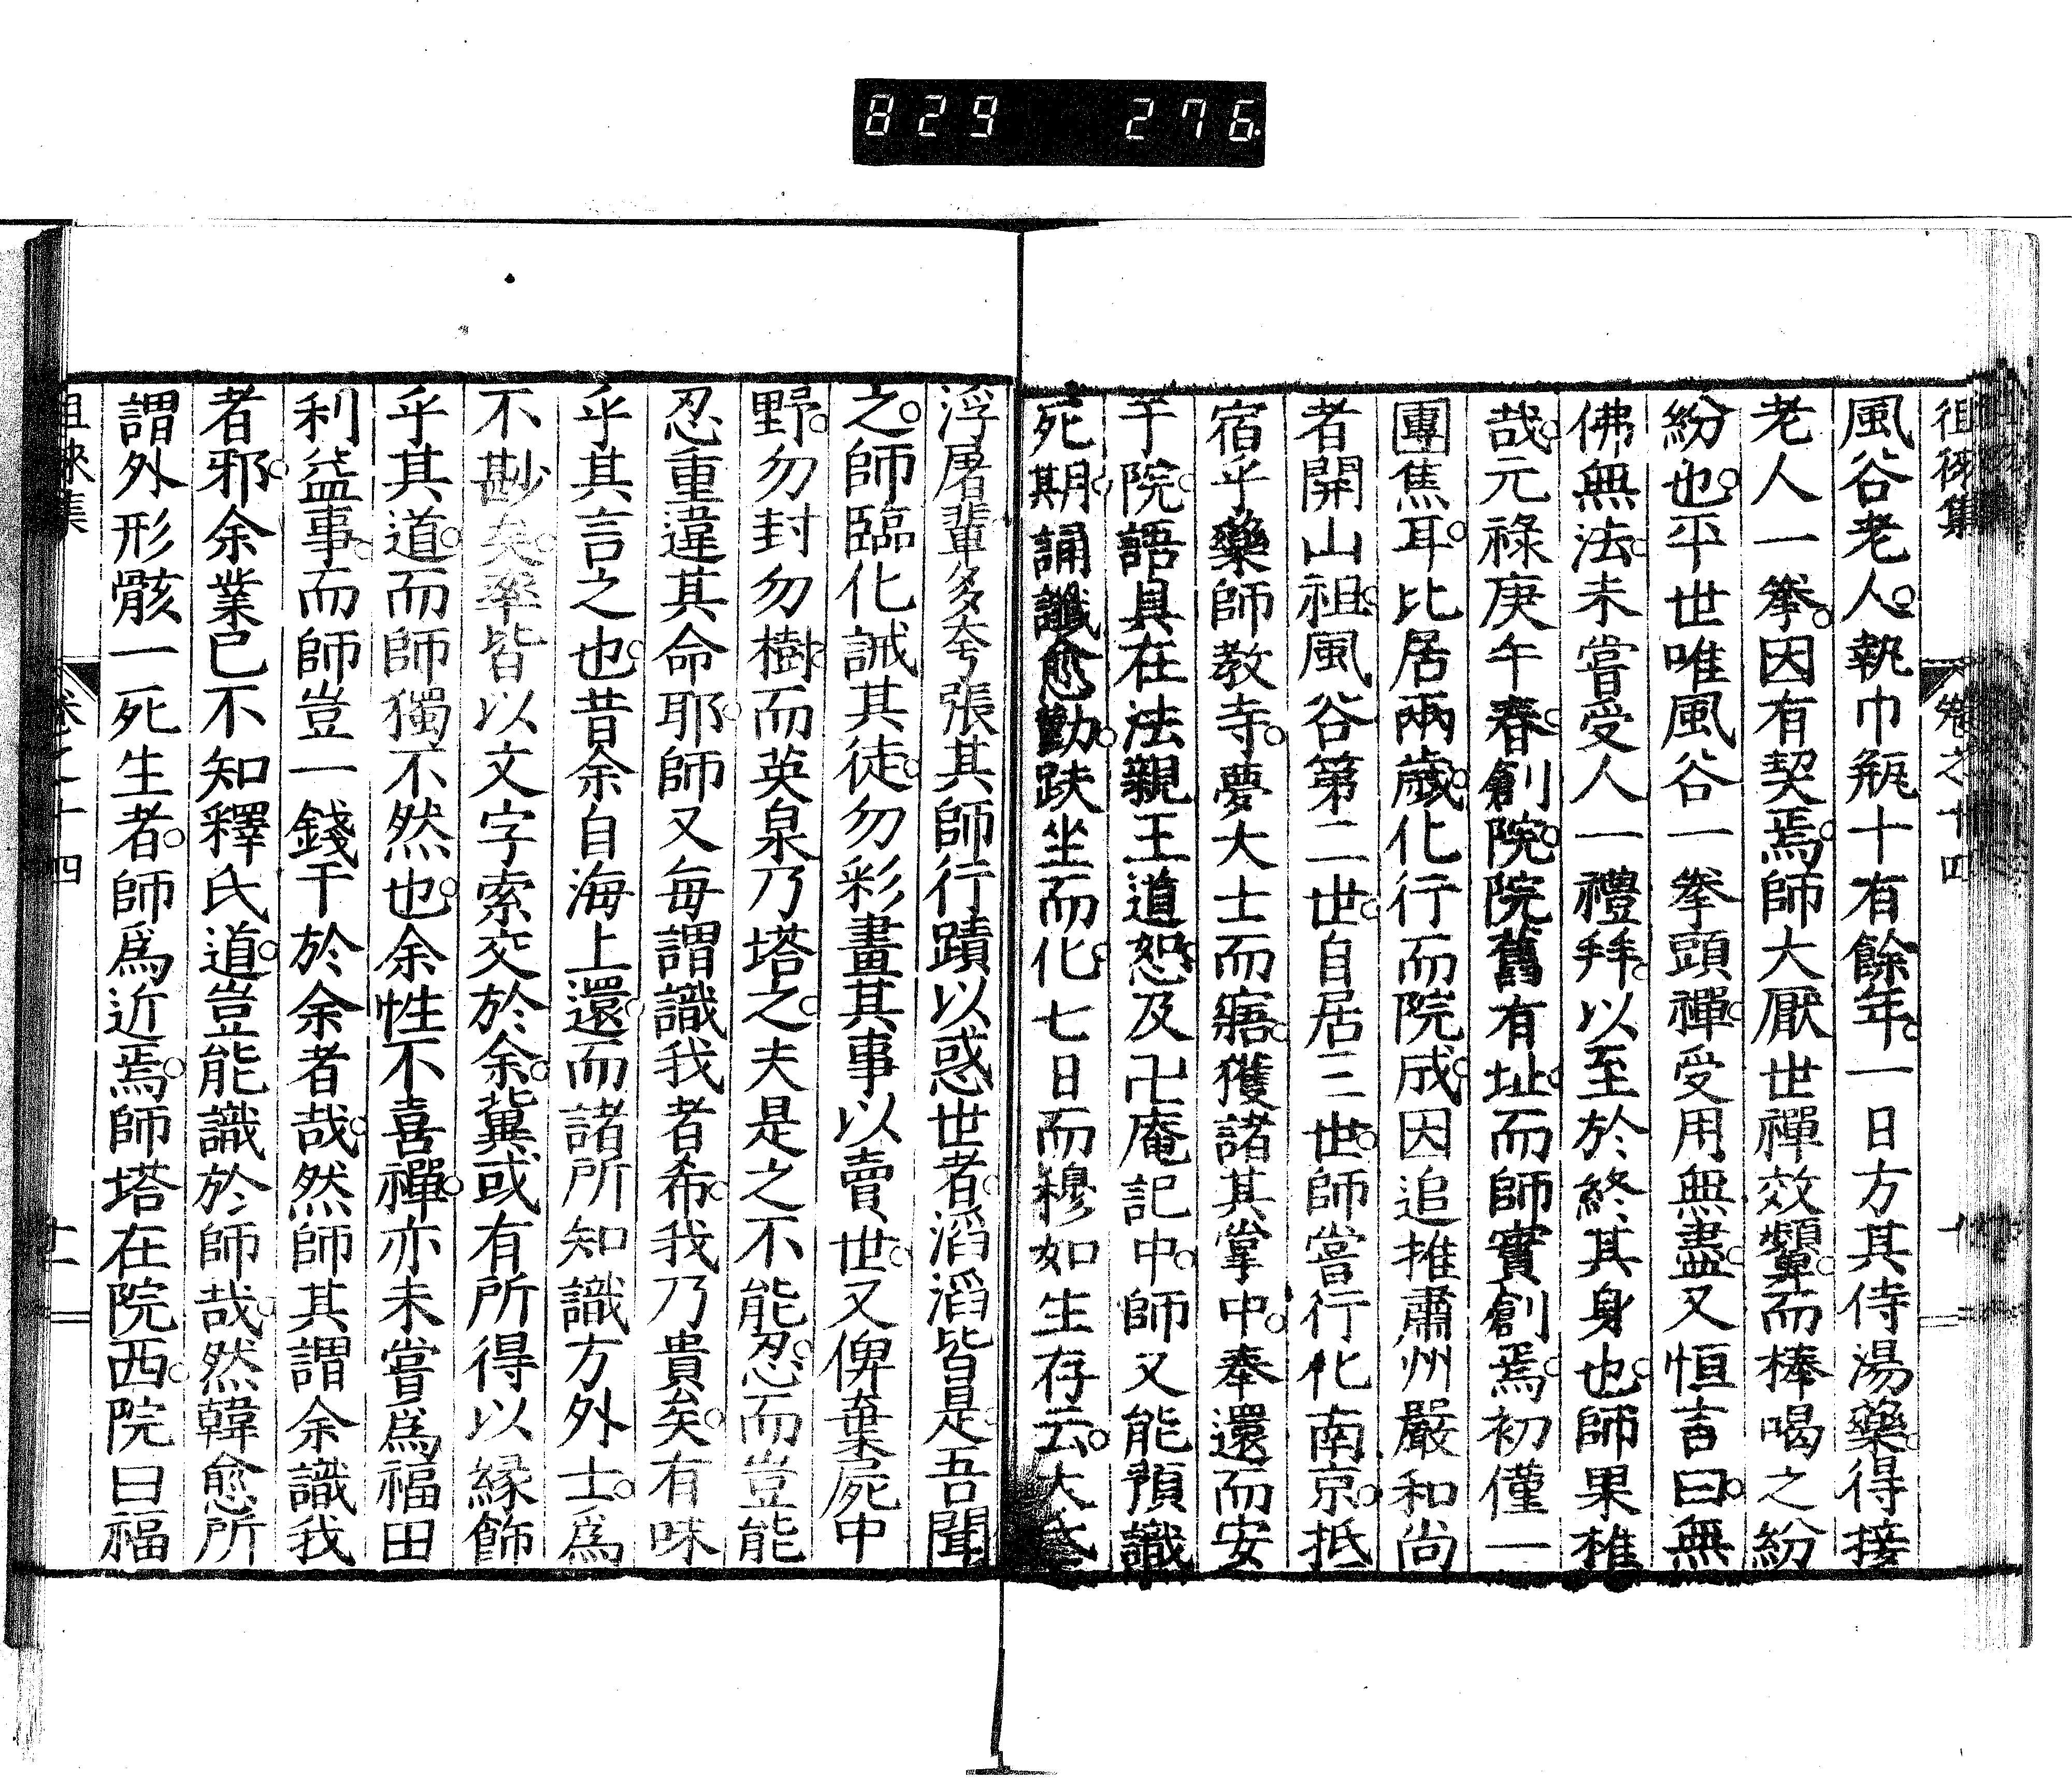 829 276
徂徠集 卷之十四 十
風谷老人。執巾瓶十有餘年。一日方其侍湯藥。得接
老人一拳。因有契焉。師大厭世禪效顰。而棒喝之紛
紛也。平世唯風谷一拳頭禪。受用無盡。又恒言曰。無
佛無法。未嘗受人一禮拜。以至於終其身也。師果樵
哉。元祿庚午春。創院。院舊有址。而師實創焉。初僅一
團焦耳。比居兩歲。化行而院成。因追推肅州嚴和尚
者開山祖。風谷第二世。自居三世。師嘗行化南京。抵
宿乎藥師教寺。夢大士而寤。獲諸其掌中。奉還而安
于院。語具在法親王道恕及卍庵記中。師又能預識
死期。誦讖愈勤。趺坐而化。七日而穆如生存云。大氐
浮屠輩多夸張其師行蹟以惑世者。滔滔皆是。吾聞
之。師臨化誡其徒。勿彩畫其事以賣世。又俾棄屍中
野。勿封勿樹。而英泉乃塔之。夫是之不能忍。而豈能
忍重違其命耶。師又每謂識我者希。我乃貴矣。有味
乎其言之也。昔余自海上還。而諸所知識方外士。爲
不尠矣。率皆以文字索交於余。冀或有所得以緣飾
乎其道。而師獨不然也。余性不喜禪。亦未嘗爲福田
利益事。而師豈一錢干於余者哉。然師其謂余識我
者邪。余業已不知釋氏道。豈能識於師哉。然韓愈所
謂外形骸一死生者。師爲近焉。師塔在院西。院曰福
徂徠集 卷之十四 十一